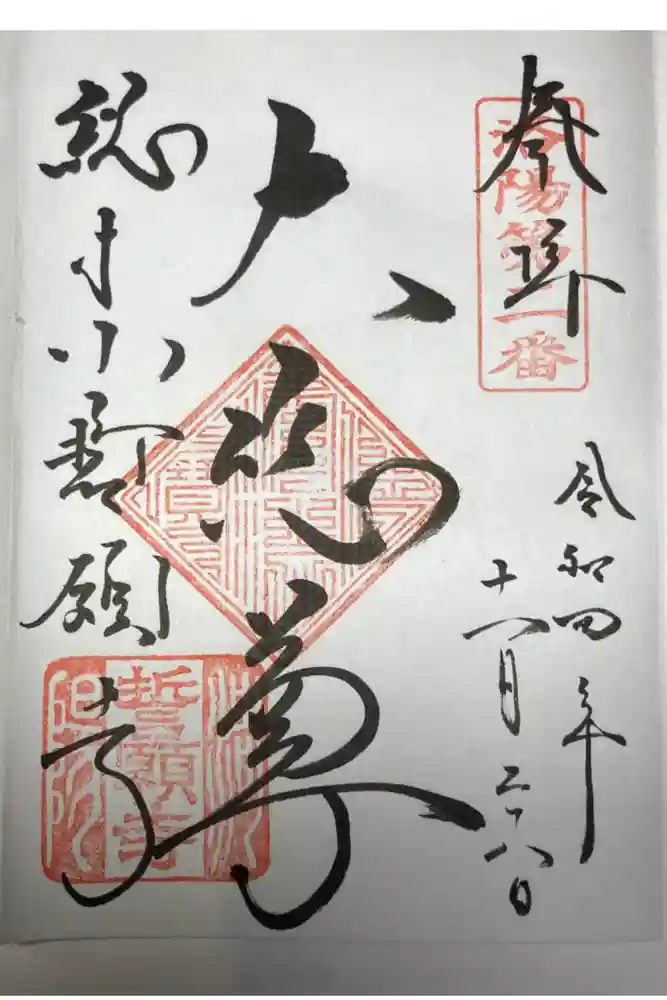 奉拝
洛陽第二番
令和四年
十一月二十八日
大悲尊
総本山誓願寺
誓願寺